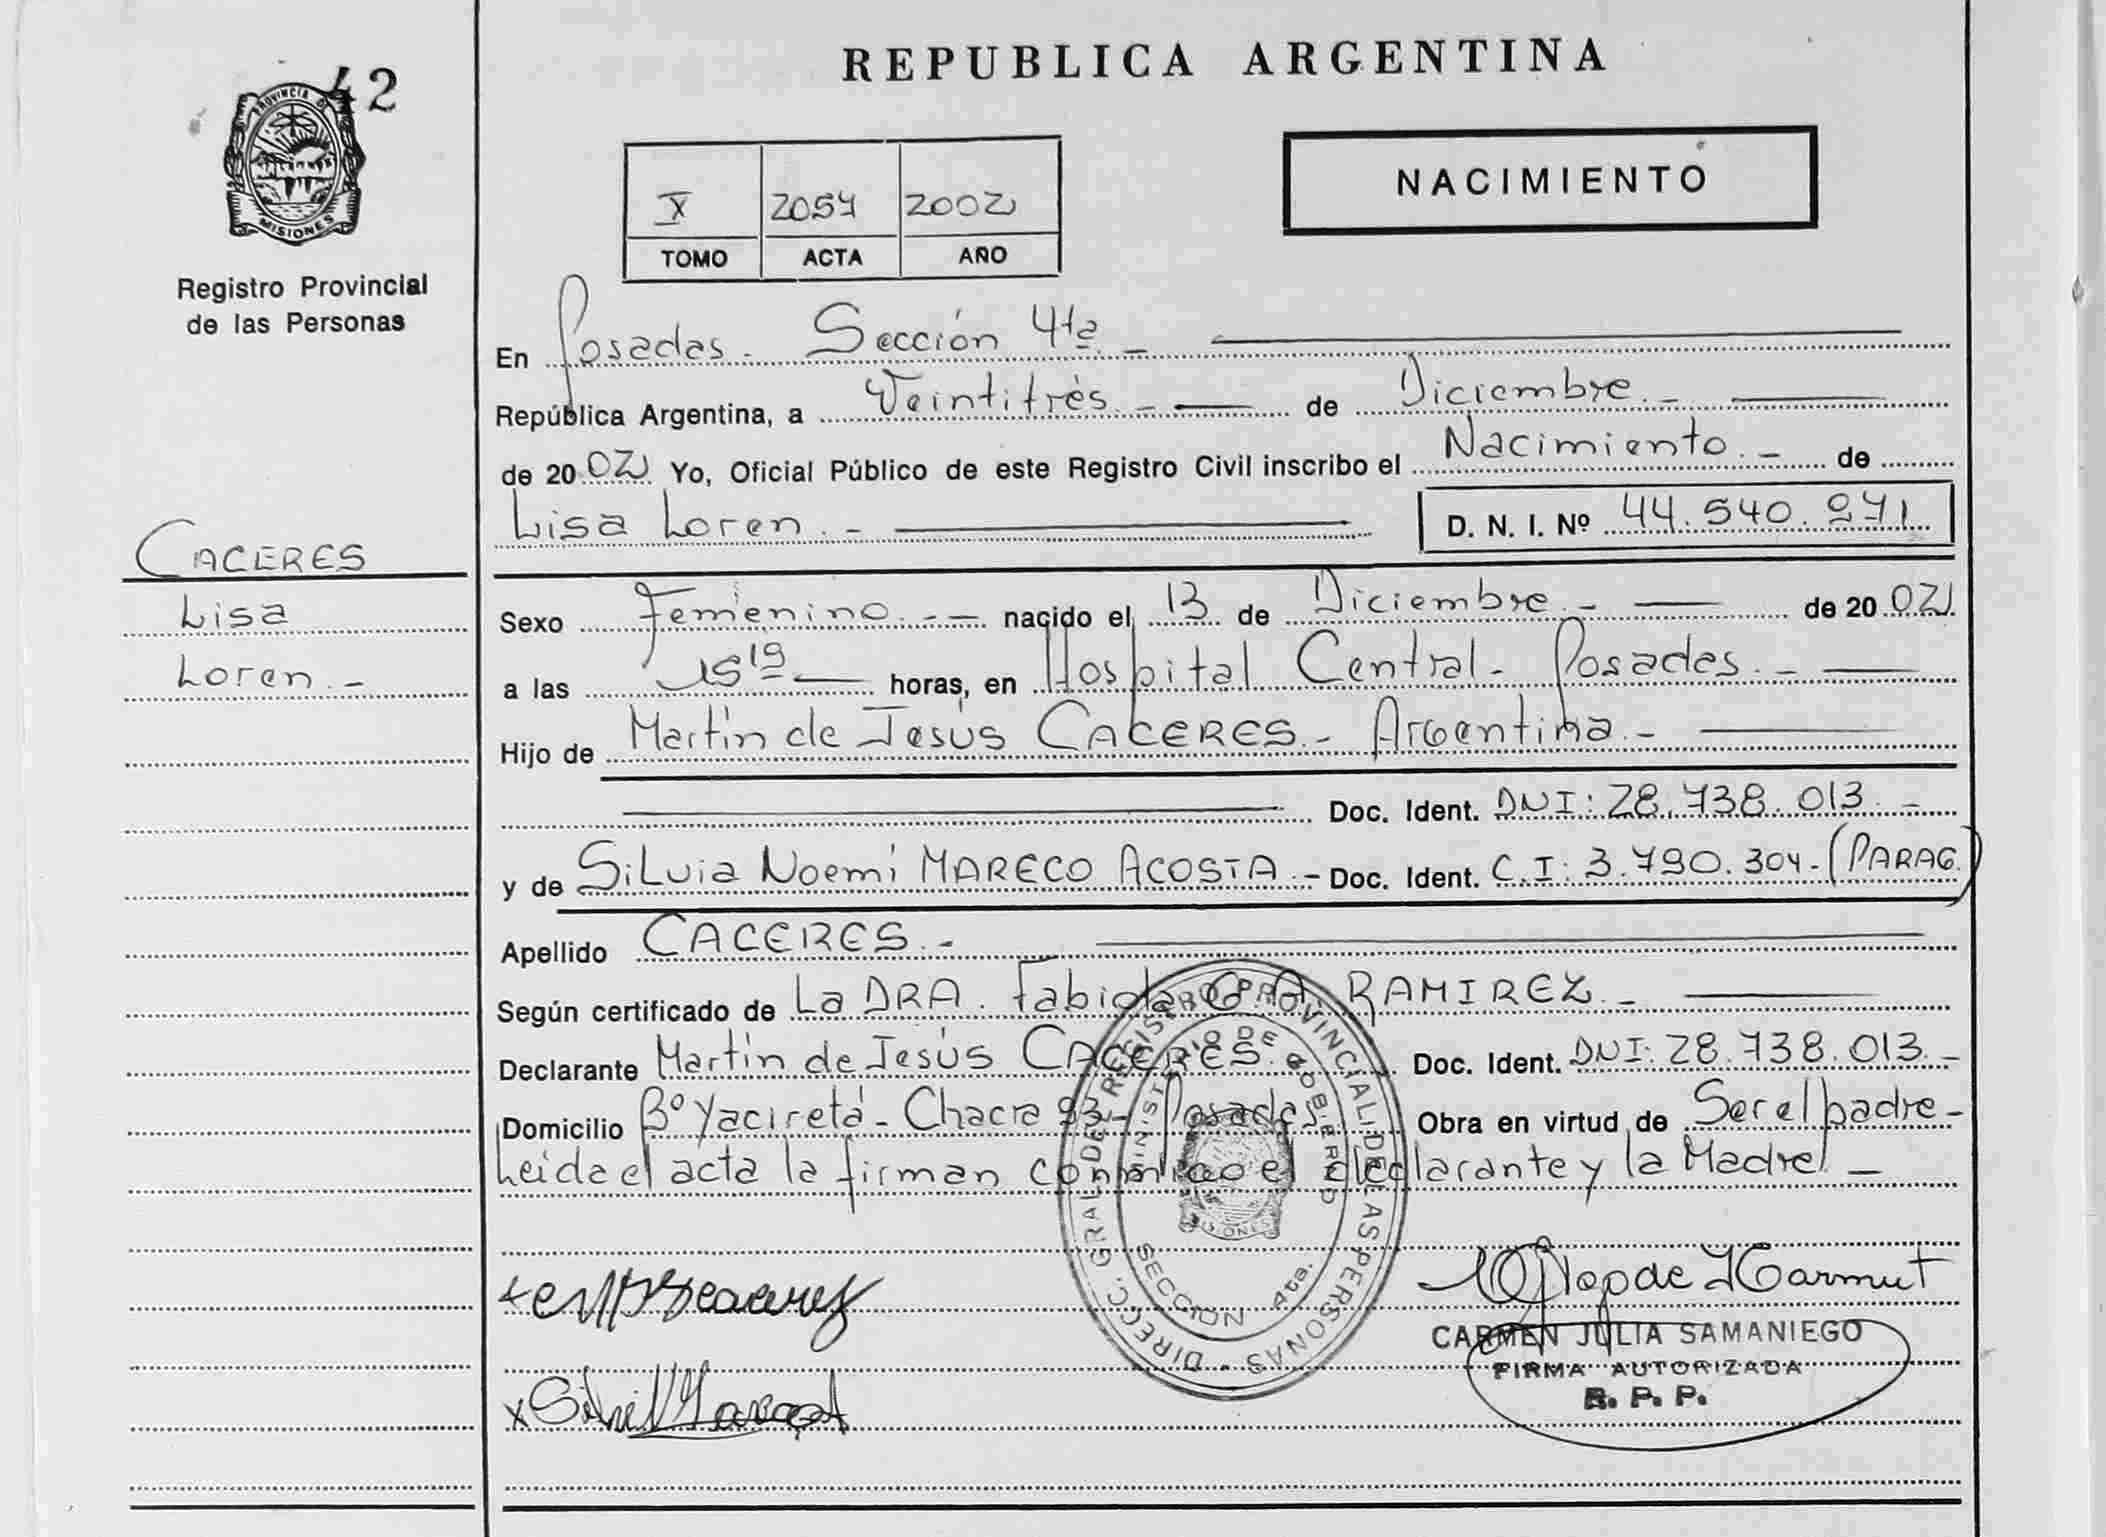 42
PROVINCIA DE
MISIONES
Registro Provincial
de las Personas
CACERES
Lisa
Loren.-
REPUBLICA ARGENTINA
NACIMIENTO
X 2054 2002
TOMO ACTA AÑO
En Posadas. Sección 4ta. -
República Argentina, a Veintitrés.- de Diciembre.-
de 2002 Yo, Oficial Público de este Registro Civil inscribo el Nacimiento.- de
Lisa Loren.- D. N. I. Nº 44.540.971
Sexo Femenino.- nacido el 13 de Diciembre.- de 2002
a las 15 19 horas, en Hospital Central- Posadas.-
Hijo de Martín de Jesús CACERES.- Argentina.-
Doc. Ident. DNI: 28.738.013.-
y de SiLvia Noemí MARECO ACOSTA.- Doc. Ident. C.I: 3.790.304-(PARAG.)
Apellido CACERES.-
Según certificado de La DRA. Fabiola A. RAMIREZ.-
Declarante Martín de Jesús CACERES. Doc. Ident. DNI: 28.738.013.-
Domicilio Bº Yaciretá- Chacra 93- Posadas Obra en virtud de Ser el padre-
Leida el acta la firman conmigo el declarante y la Madre.-
DIRECC. GRAL. DE REGISTRO PROVINCIAL DE LAS PERSONAS
MINISTERIO DE GOBIERNO
MISIONES
SECCION 4ta.
CARMEN JULIA SAMANIEGO
FIRMA AUTORIZADA
R. P. P.